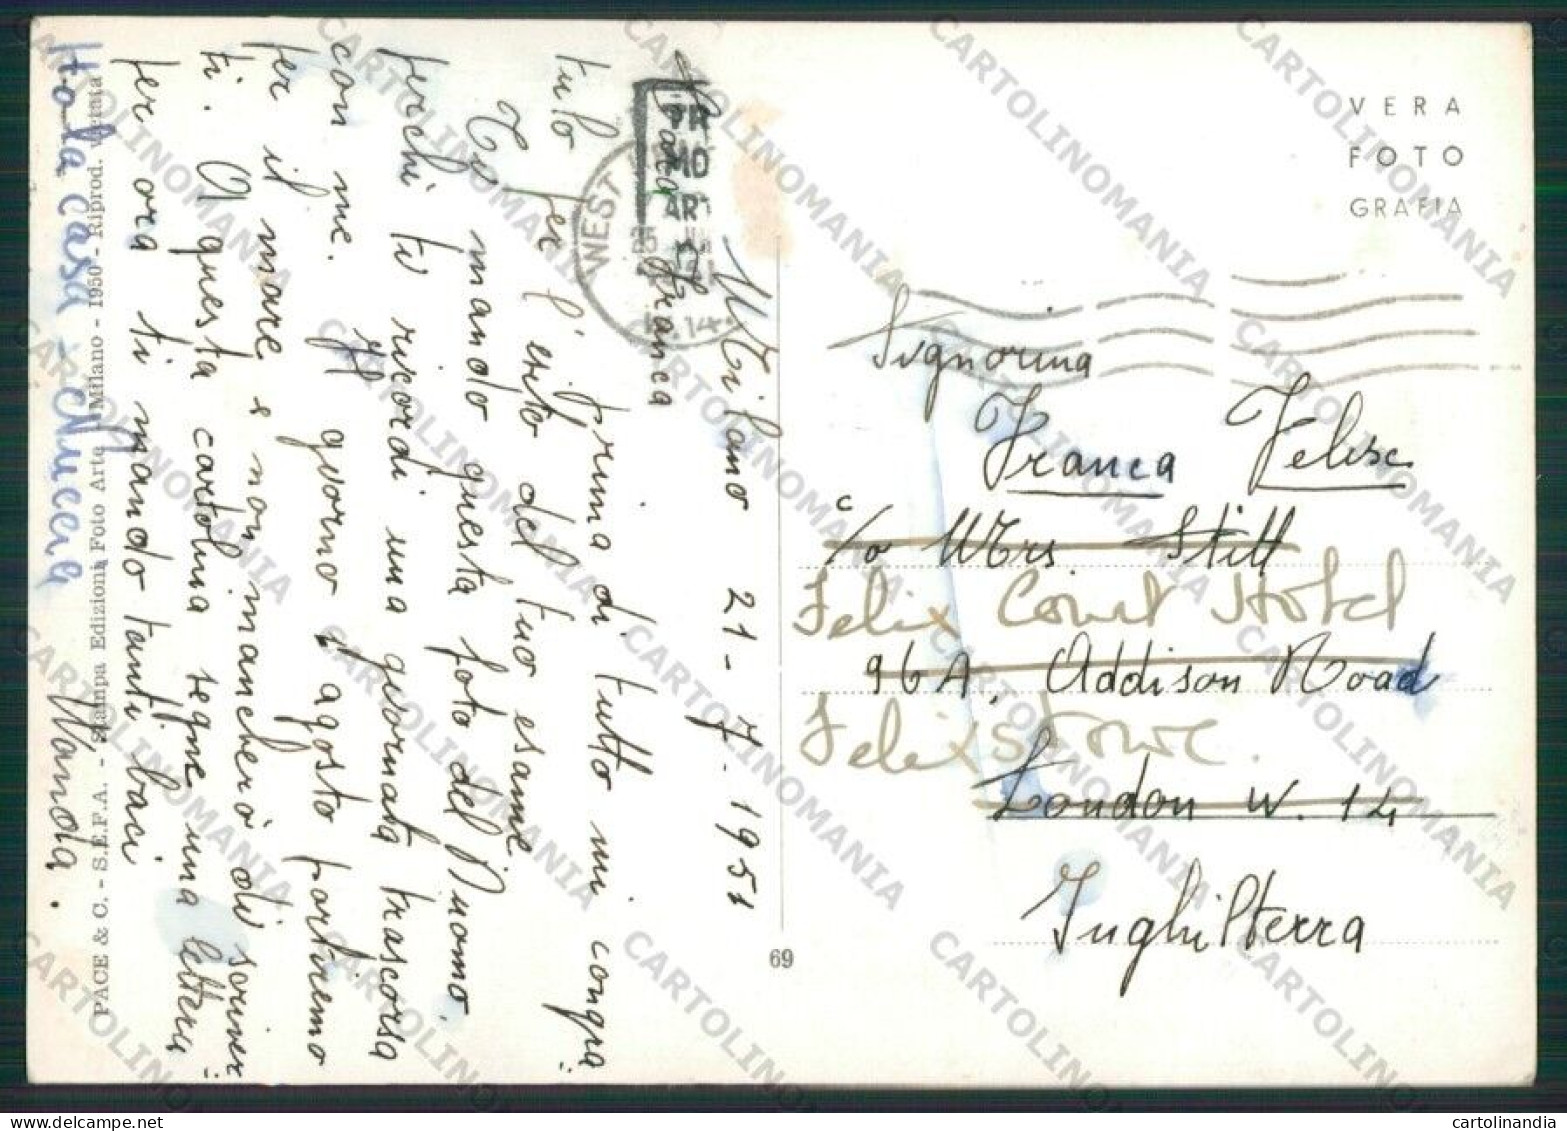 Milano 21-7-1951
Cara Franca
prima di tutto mi congra=
tulo per l'esito del tuo esame.
Ti mando questa foto del Duomo
perchè ti ricordi una giornata trascorsa
con me. Il giorno 1 agosto partiremo
per il mare e non mancherò di scriver=
ti. A questa cartolina segue una lettera
per ora ti mando tanti baci
Wanda.
PACE & C. - S.E.F.A. - Stampa Edizioni Foto Arte - Milano - 1950 - Riprod. vietata
69
VERA
FOTO
GRAFIA
WEST
Signorina
Franca Felise
c/o Mrs Still
Felix Court Hotel
96A, Addison Road
Felixstowe.
London W. 14
Inghilterra
CARTOLINOMANIA
cartolinandia